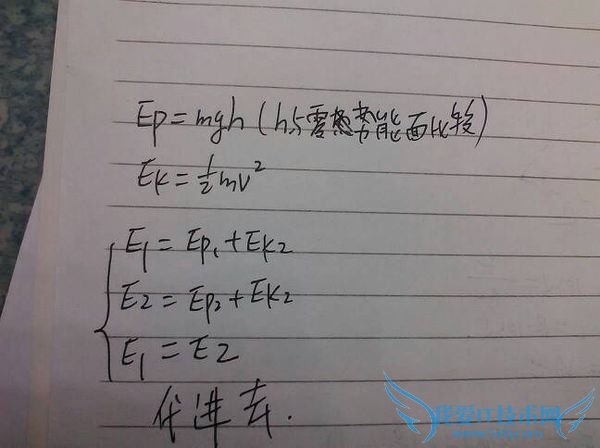 Ep=mgh(h与零势能面比较)
Ek=½mv²
E1=Ep1+Ek2
E2=Ep2+Ek2
E1=E2
代进去.
我爱IT技术网